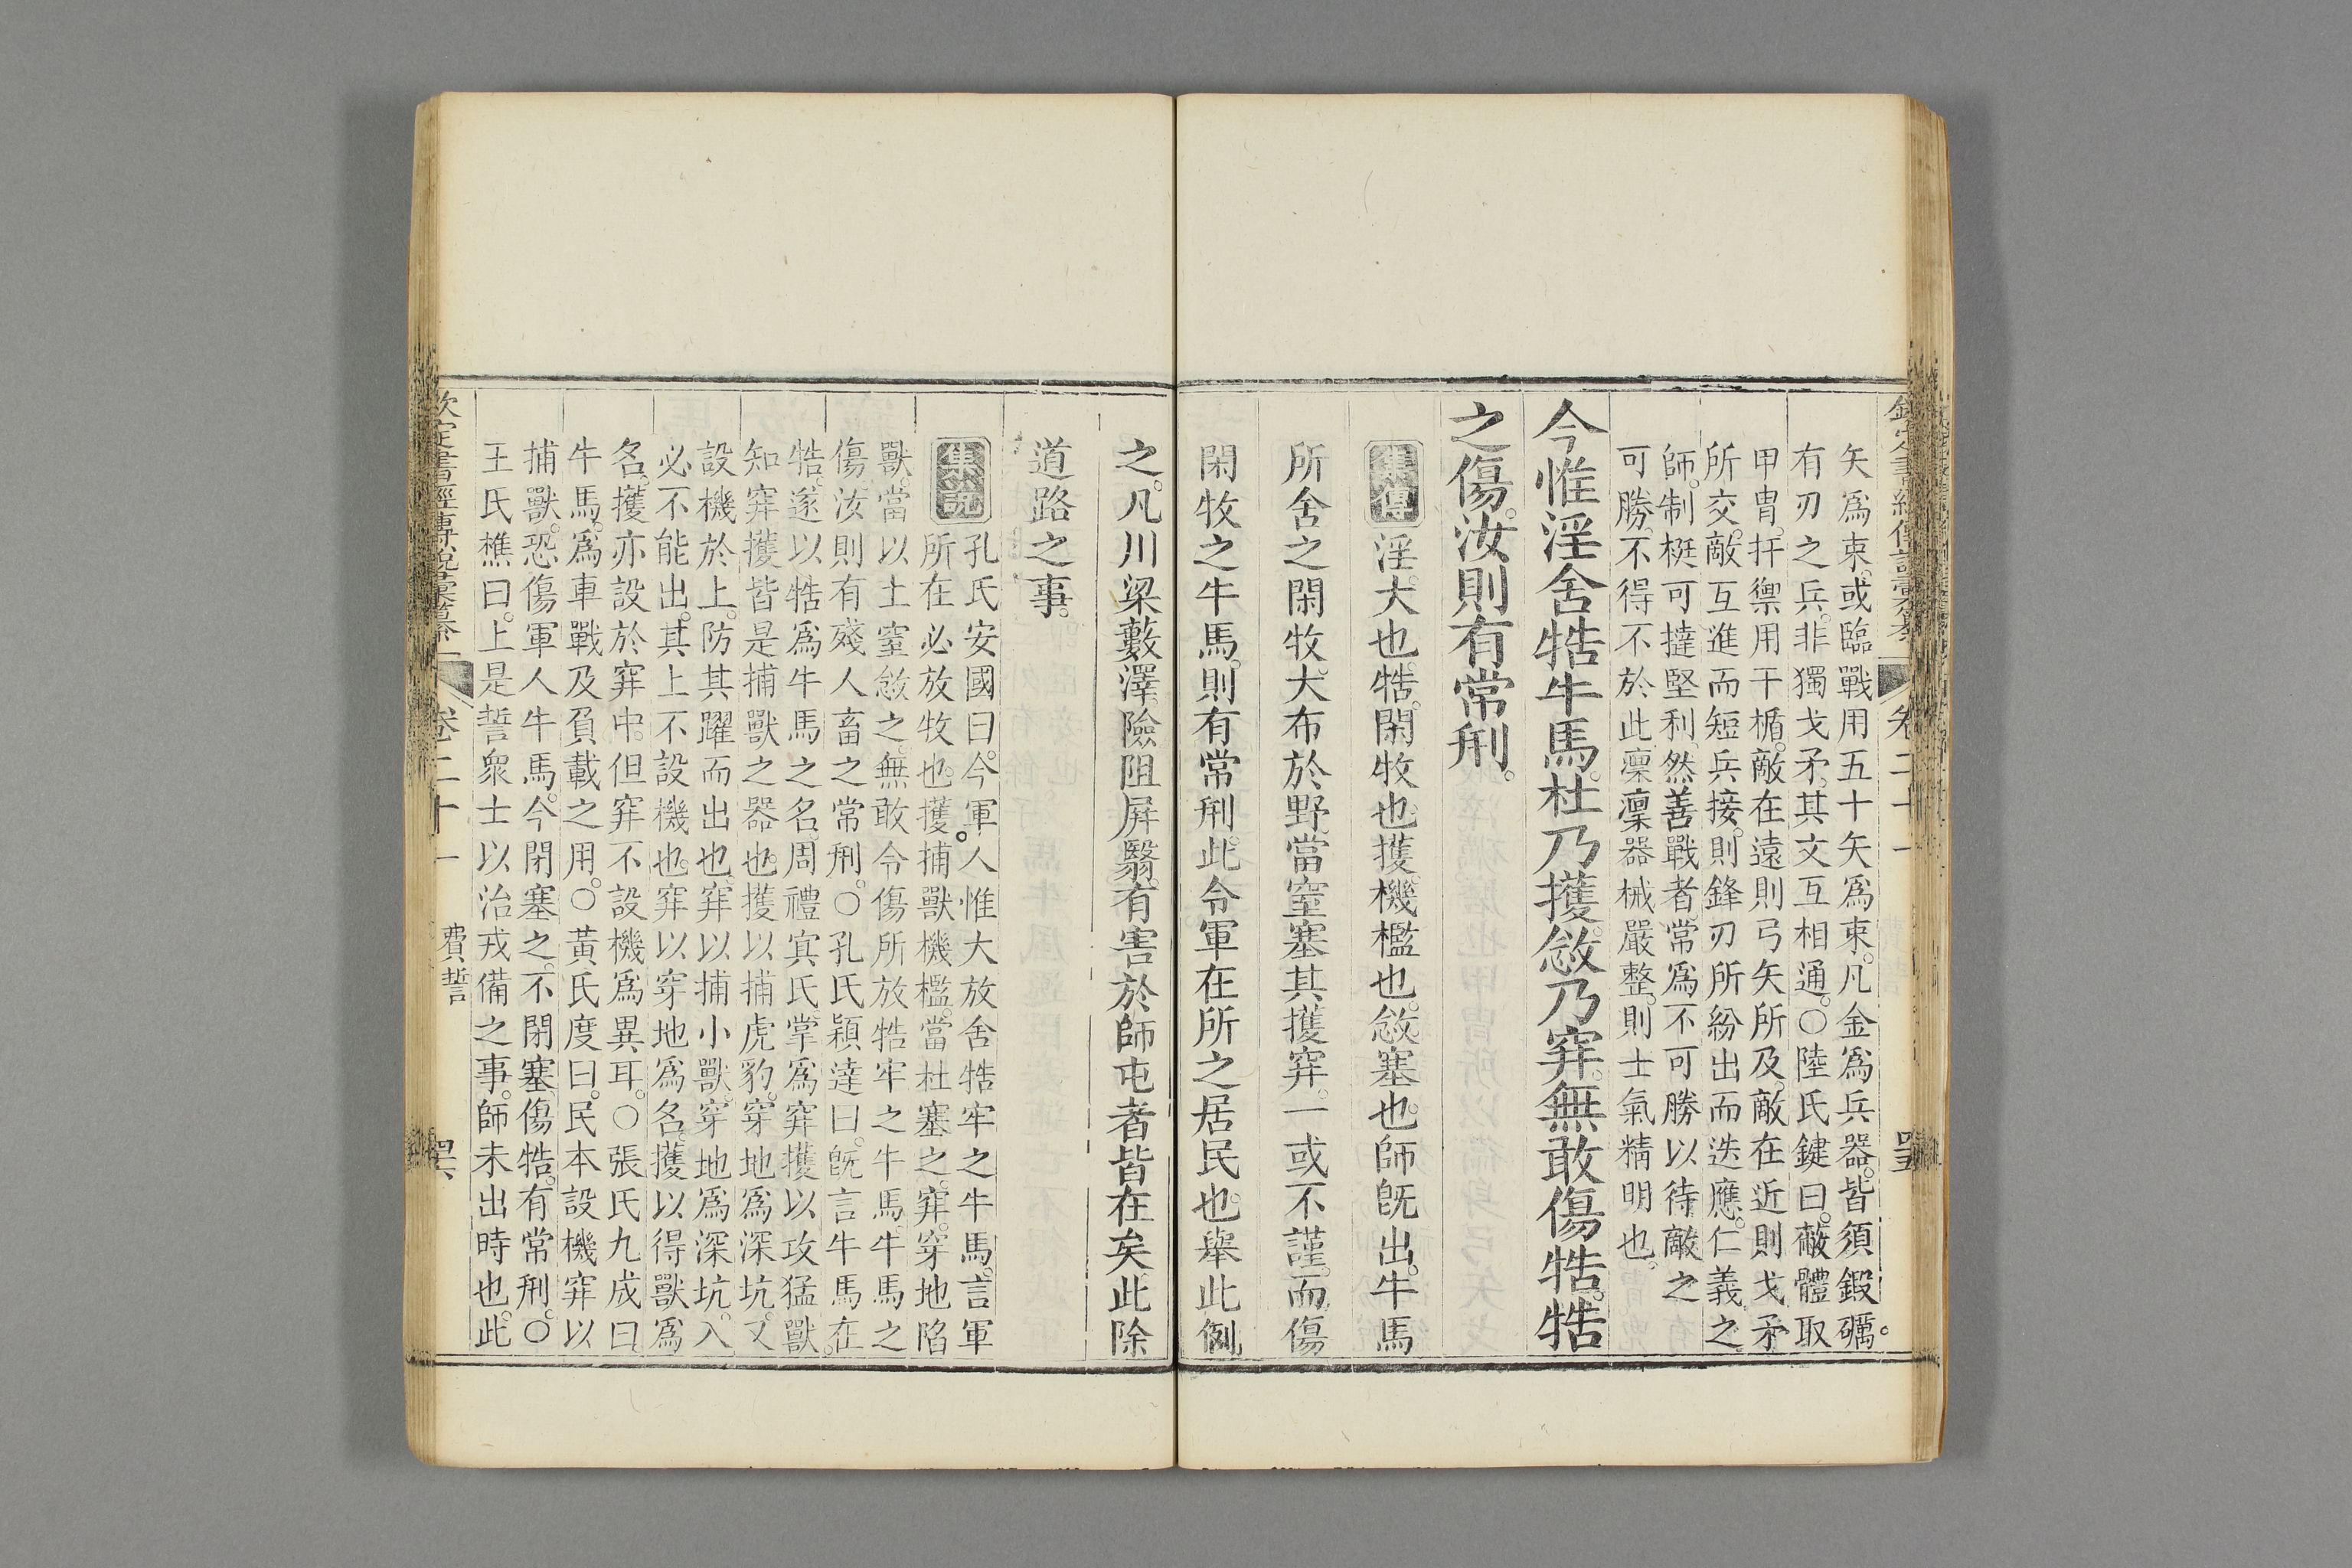 矢爲束。或臨戰用五十矢爲束。凡金爲兵器。皆須鍛礪。
有刃之兵。非獨戈矛。其文互相通。○陸氏鍵曰。蔽體取
甲冑。扞禦用干楯。敵在遠則弓矢所及。敵在近則戈矛
所交。敵互進而短兵接。則鋒刃所紛出而迭應。仁義之
師。制梃可撻堅利。然善戰者。常爲不可勝以待敵之
可勝。不得不於此凜凜器械嚴整。則士氣精明也。
今惟淫舍牿牛馬。杜乃擭。敜乃穽。無敢傷牿。牿
之傷。汝則有常刑。
集傳
淫。大也。牿。閑牧也。擭。機檻也。敜。塞也。師旣出。牛馬
所舍之閑牧。大布於野。當窒塞其擭穽。一或不謹。而傷
閑牧之牛馬。則有常刑。此令軍在所之居民也。舉此例
之。凡川梁藪澤。險阻屏翳。有害於師屯者皆在矣。此除
道路之事。
集說
孔氏安國曰。今軍人惟大放舍牿牢之牛馬。言軍
所在必放牧也。擭。捕獸機檻。當杜塞之。穽。穿地陷
獸。當以土窒敜之。無敢令傷所放牿牢之牛馬。牛馬之
傷。汝則有殘人畜之常刑。○孔氏穎達曰。旣言牛馬在
牿。遂以牿爲牛馬之名。周禮寘氏掌爲穽擭以攻猛獸。
知穽擭皆是捕獸之器也。擭以捕虎豹。穿地爲深坑。又
設機於上。防其躍而出也。穽以捕小獸。穿地爲深坑。入
必不能出。其上不設機也。穽以穿地爲名。擭以得獸爲
名。擭亦設於穽中。但穽不設機爲異耳。○張氏九成曰
牛馬。爲車戰及負載之用。○黃氏度曰。民本設機穽以
捕獸。恐傷軍人牛馬。今閉塞之。不閉塞。傷牿。有常刑。○
王氏樵曰。上是誓衆士以治戎備之事。師未出時也。此
欽定書經傳說彙纂
卷二十一
費誓